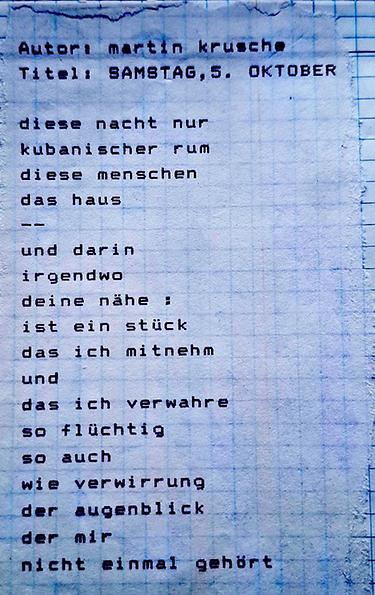 Autor: martin krusche
Titel: SAMSTAG,5. OKTOBER
diese nacht nur
kubanischer rum
diese menschen
das haus
--
und darin
irgendwo
deine nähe ;
ist ein stück
das ich mitnehm
und
das ich verwahre
so flüchtig
so auch
wie verwirrung
der augenblick
der mir
nicht einmal gehört